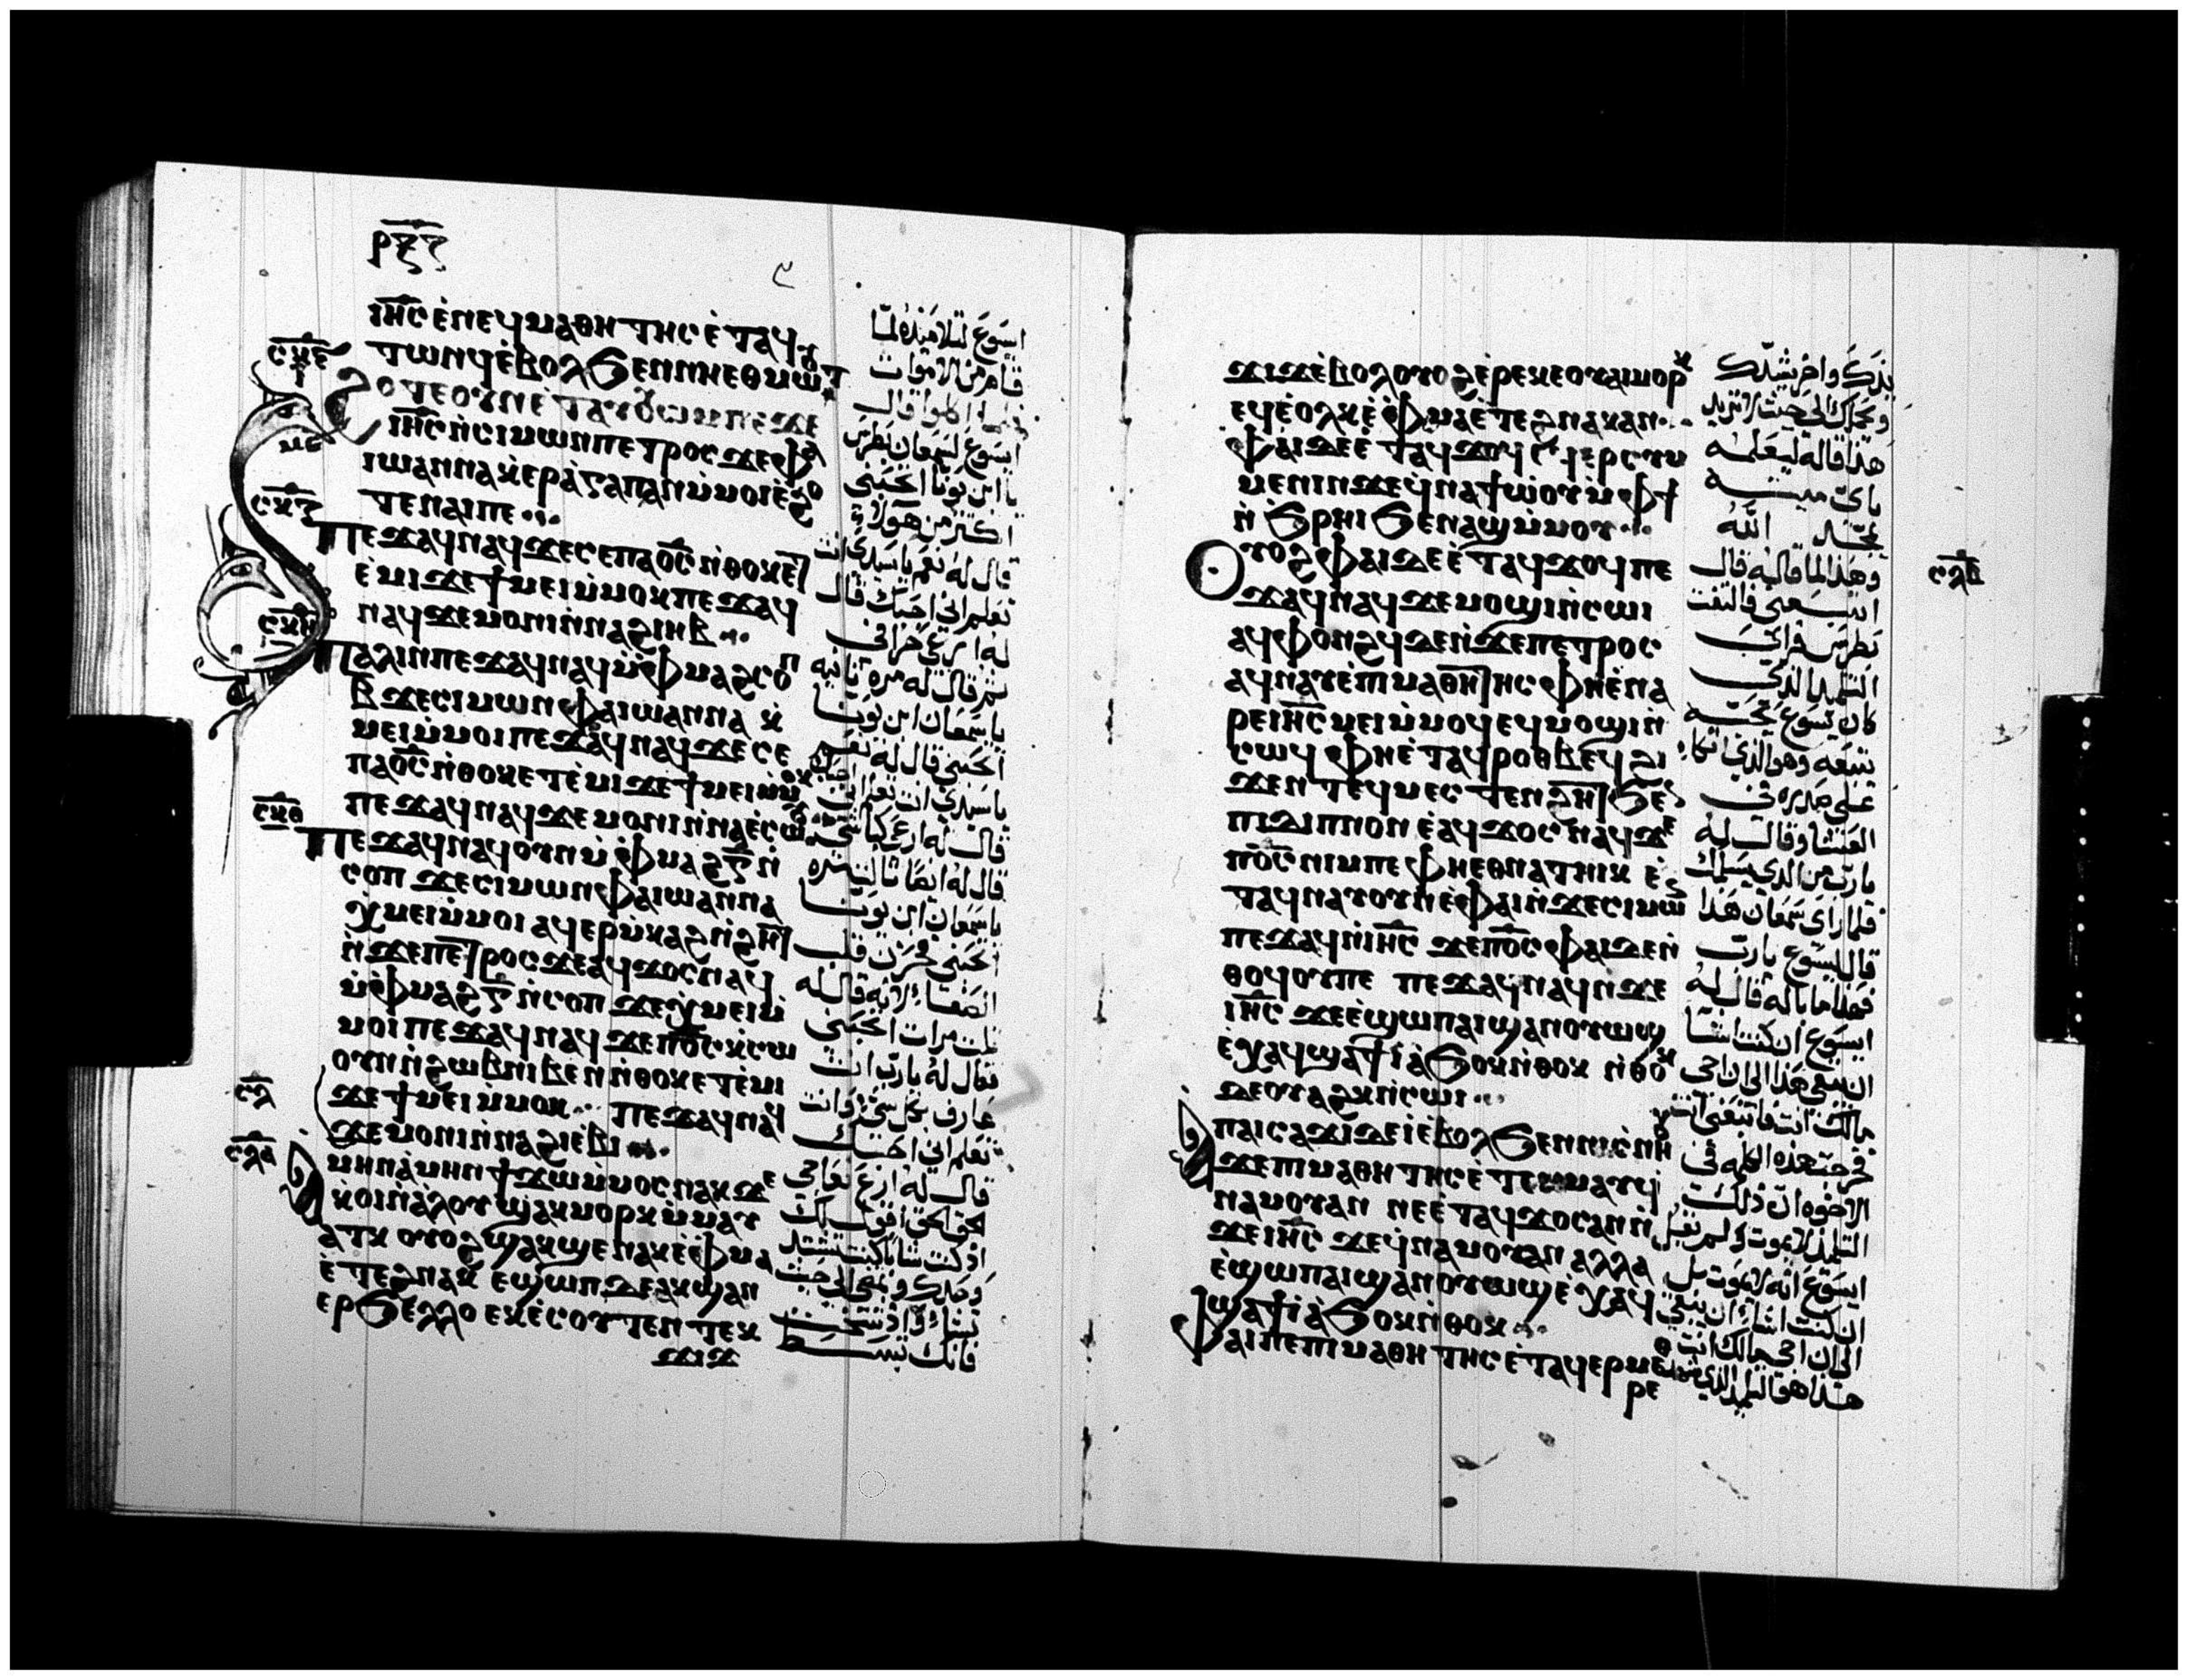 ⲣⲝⲍ
ⲓⲏ̅ⲥ̅ ⲉ̀ⲛⲉϥⲙⲁⲑⲏⲧⲏⲥ ⲉ̀ⲧⲁϥ
ⲧⲱⲛϥ ⲉ̀ⲃⲟⲗϧⲉⲛⲛⲏⲉⲑⲙⲱⲟⲩⲧ
ⲥⲕⲋ
ϩⲟⲧⲉ ⲟⲩⲛ ⲉ̀ⲧⲁⲩⲟⲩⲱⲙ ⲡⲉϫⲉ
ⲓⲏ̅ⲥ̅ ⲛ̀ⲥⲓⲙⲱⲛⲡⲉⲧⲣⲟⲥ ϫⲉⲫⲁ
ⲓⲱⲁⲛⲛⲁ ⲭ̀ⲉⲣⲁ̀ⲅⲁⲡⲁⲛ ⲙ̀ⲙⲟⲓ ⲉ̀ϩⲟ
ⲧⲉⲛⲁⲓⲡⲉ
ⲥⲕⲍ
ⲡⲉϫⲁϥⲛⲁϥ ϫⲉⲥⲉ ⲡⲁⲟ̅ⲥ̅ ⲛ̀ⲑⲟⲕⲉⲧ
ⲉ̀ⲙⲓ ϫⲉϯⲙⲉⲓ ⲙ̀ⲙⲟⲕ ⲡⲉϫⲁϥ
ⲛⲁϥ ϫⲉⲙⲟⲛⲓ ⲛ̀ⲛⲁϩⲓⲏⲃ
ⲥⲕⲏ
ⲡⲁⲗⲓⲛ ⲡⲉϫⲁϥⲛⲁϥ ⲙ̀ⲫⲙⲁϩⲥⲟⲡ
ⲃ̅ ϫⲉⲥⲓⲙⲱⲛ ⲫⲁⲓⲱⲁⲛⲛⲁ ⲭ̀
ⲙⲉⲓⲙ̀ⲙⲟⲓ ⲡⲉϫⲁϥⲛⲁϥ ϫⲉⲥⲉ
ⲡⲁⲟ̅ⲥ̅ ⲛ̀ⲑⲟⲕⲉⲧⲉ̀ⲙⲓ ϫⲉϯⲙⲉⲓⲙ̀ⲙⲟⲕ
ⲡⲉϫⲁϥⲛⲁϥ ϫⲉⲙⲟⲛⲓ ⲛ̀ⲛⲁⲉ̀ⲥⲱⲟⲩ
ⲥⲕⲑ
ⲡⲉϫⲁϥⲛⲁϥ ⲟⲩⲛ ⲙ̀ⲫⲙⲁϩⲅ̅ ⲛ̀
ⲥⲟⲡ ϫⲉⲥⲓⲙⲱⲛ ⲫⲁⲓⲱⲁⲛⲛⲁ
ⲭⲙⲉⲓⲙ̀ⲙⲟⲓ ⲁϥⲉⲣⲙ̀ⲕⲁϩ ⲛ̀ϩⲏⲧ
ⲛ̀ϫⲉⲡⲉⲧⲣⲟⲥ ϫⲉⲁϥϫⲟⲥⲛⲁϥ
ⲙ̀ⲫⲙⲁϩⲅ̅ ⲛ̀ⲥⲟⲡ ϫⲉⲭ̀ⲙⲉⲓⲙ̀
ⲙⲟⲓ ⲡⲉϫⲁϥⲛⲁϥ ϫⲉⲡⲟ̅ⲥ̅ ⲕ̀ⲥⲱ
ⲟⲩⲛ ⲛ̀ϩⲱⲃⲛⲓⲃⲉⲛ ⲛ̀ⲑⲟⲕⲉⲧⲉ̀ⲙⲓ
ⲥⲗ
ϫⲉϯⲙⲉⲓⲙ̀ⲙⲟⲕ ⲡⲉϫⲁϥⲛⲁϥ
ϫⲉⲙⲟⲛⲓ ⲛ̀ⲛⲁϩⲓⲉ̀ⲃⲓ
ⲥⲗⲁ
ⲁ̀ⲙⲏⲛ ⲁ̀ⲙⲏⲛ ϯϫⲱⲙ̀ⲙⲟⲥⲛⲁⲕ ϫⲉ
ⲭ̀ⲟⲓ ⲛ̀ⲁ̀ⲗⲟⲩ ϣⲁⲕⲙⲟⲣⲕ ⲙ̀ⲙⲁⲩ
ⲁⲧⲕ ⲟⲩⲟϩ ϣⲁⲕϣⲉⲛⲁⲕ ⲉ̀ⲫⲙⲁ
ⲉ̀ⲧⲉϩⲛⲁⲕ ⲉϣⲱⲡ ⲇⲉ ⲁⲕϣⲁⲛ
ⲉⲣϧⲉⲗⲗⲟ ⲉⲕⲉ̀ⲥⲟⲩⲧⲉⲛ ⲧⲉⲕ
ϫⲓϫ
ايسوع لتلاميذه لما
قام من الاموات
ايسوع لسمعان بطرس
يا ابن يونا اتحبني
اكثر من هولاء
قال له نعم ياسيدي انت
تعلم اني احبك قال
له ارعى خرافي
ثم قال له مره ثانيه
ياسمعان ابن يونا
اتحبني قال له نعم
قال له ارع كباشي
قال له ايضا ثالث مره
ياسمعان ابن يونا
اتحبني فحزن قلب
الصفا لانه قال له
ثلث مرات اتحبني
فقال له يارب انت
عارف بكل شي وانت
تعلم اني احبك
قال له ارع نعاجي
الحق الحق اقول لك
فانك تبسط
ϫⲓϫ ⲉ̀ⲃⲟⲗ ⲟⲩⲟϩ ⲉ̀ⲣⲉⲕⲉⲟⲩⲁⲓ ⲙⲟⲣⲕ
ⲉϥⲉ̀ⲟⲗⲕ ⲉ̀ⲫⲙⲁ ⲉ̀ⲧⲉϩⲛⲁⲕ ⲁⲛ
ⲫⲁⲓ ⲇⲉ ⲉ̀ⲧⲁϥϫⲟϥ ⲉϥⲉⲣⲥⲩⲙ
ⲙⲉⲛⲓⲛ ϫⲉϥ̀ⲛⲁϯⲱ̀ⲟⲩ ⲙ̀ⲫϯ
ⲛ̀ϧⲣⲏⲓ ϧⲉⲛ ⲁϣ ⲙ̀ⲙⲟⲩ
ⲟⲩⲟϩ ⲫⲁⲓ ⲇⲉ ⲉ̀ⲧⲁϥϫⲟϥ ⲡⲉ
ϫⲁϥⲛⲁϥ ϫⲉⲙⲟϣⲓ ⲛ̀ⲥⲱⲓ
ⲥⲗⲃ
ⲁϥⲫⲟⲛϩϥ ⲇⲉ ⲛ̀ϫⲉⲡⲉⲧⲣⲟⲥ
ⲁϥⲛⲁⲩ ⲉ̀ⲡⲓⲙⲁⲑⲏⲧⲏⲥ ⲫⲏⲉ̀ⲛⲁ
ⲣⲉⲓⲏ̅ⲥ̅ ⲙⲉⲓⲙ̀ⲙⲟϥ ⲉϥⲙⲟϣⲓ ⲛ̀
ⲥⲱϥ ⲫⲏⲉ̀ⲧⲁϥⲣⲟⲑⲃⲉϥ ϩⲓ
ϫⲉⲛ ⲧⲉϥⲙⲉⲥⲧⲉⲛϩⲏⲧ ϧⲉⲛ
ⲡⲓⲇⲓⲡⲛⲟⲛ ⲉ̀ⲁϥϫⲟⲥⲛⲁϥ ϫⲉ
ⲡⲟ̅ⲥ̅ ⲛⲓⲙⲡⲉ ⲫⲏⲉⲑⲛⲁⲧⲏⲓⲕ ⲉ̀
ⲧⲁϥⲛⲁⲩ ⲟⲩⲛ ⲉ̀ⲫⲁⲓ ⲛ̀ϫⲉⲥⲓⲙⲱⲛ
ⲡⲉϫⲁϥ ⲛ̀ⲓⲏ̅ⲥ̅ ϫⲉⲡⲟ̅ⲥ̅ ⲫⲁⲓ ⲇⲉ ⲛ̀
ⲑⲟϥ ⲟⲩⲡⲉ ⲡⲉϫⲁϥⲛⲁϥ ⲛ̀ϫⲉ
ⲓⲏ̅ⲥ̅ ϫⲉⲉ̀ϣⲱⲡ ⲁⲓϣⲁⲛⲟⲩⲱϣ
ⲉ̀ⲭⲁϥ ϣⲁϯⲓ̀ ⲁ̀ϧⲟⲕ ⲛ̀ⲑⲟⲕ ⲛ̀ⲑⲟⲕ
ⲇⲉ ⲟⲩⲁϩⲕ ⲛ̀ⲥⲱⲓ
ⲁ̀ⲡⲁⲓⲥⲁϫⲓ ⲇⲉ ⲓ̀ ⲉ̀ⲃⲟⲗ ϧⲉⲛ ⲛⲓⲥⲛ̀ⲏⲟⲩ
ϫⲉⲡⲓⲙⲁⲑⲏⲧⲏⲥ ⲉ̀ⲧⲉⲙⲙⲁⲩ ϥ̀
ⲛⲁⲙⲟⲩ ⲁⲛ ⲛⲉⲉ̀ⲧⲁϥϫⲟⲥ ⲁⲛ ⲛ̀
ϫⲉⲓⲏ̅ⲥ̅ ϫⲉϥ̀ⲛⲁⲙⲟⲩ ⲁⲛ ⲁⲗⲗⲁ
ⲉ̀ϣⲱⲡ ⲁⲓϣⲁⲛⲟⲩⲱϣ ⲉ̀ⲭⲁϥ
ϣⲁϯⲓ̀ ⲁ̀ϧⲟⲕ ⲛ̀ⲑⲟⲕ
ⲫⲁⲓ ⲡⲉ ⲡⲓⲙⲁⲑⲏⲧⲏⲥ ⲉ̀ⲧⲁϥⲉⲣⲙⲉⲑ
ⲣⲉ
هذا قاله ليعلمه
باى ميته
يمجد الله
وهذا لما قاله قال
اتبعني فالتفت
بطرس فراى
التلميذ الذي
كان يسوع يحبه
يتبعه وهو الذي اتكا
على صدره في
العشا وقال له
يارب من الذي يسلمك
فلما راى سمعان هذا
قال ليسوع يارب
فهذا ما باله قال له
ايسوع ان كنت اشا
ان يبقى هذا الى ان اجى
مالك انت فاتبعني انت
فخرجت هذه الكلمه في
الاخوه ان ذلك
التلميذ لا يموت ولم يقل
ايسوع انه لا يموت بل
ان كنت اشا ان يبقى
الى ان اجى مالك انت
هذا هو التلميذ الذي